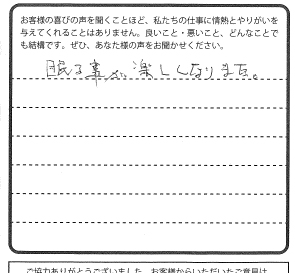 お客様の喜びの声を聞くことほど、私たちの仕事に情熱とやりがいを
与えてくれることはありません。良いこと・悪いこと、どんなことで
も結構です。ぜひ、あなた様の声をお聞かせください。
眠る事が楽しくなりました。
ご協力ありがとうございました。お客様からいただいたご意見は